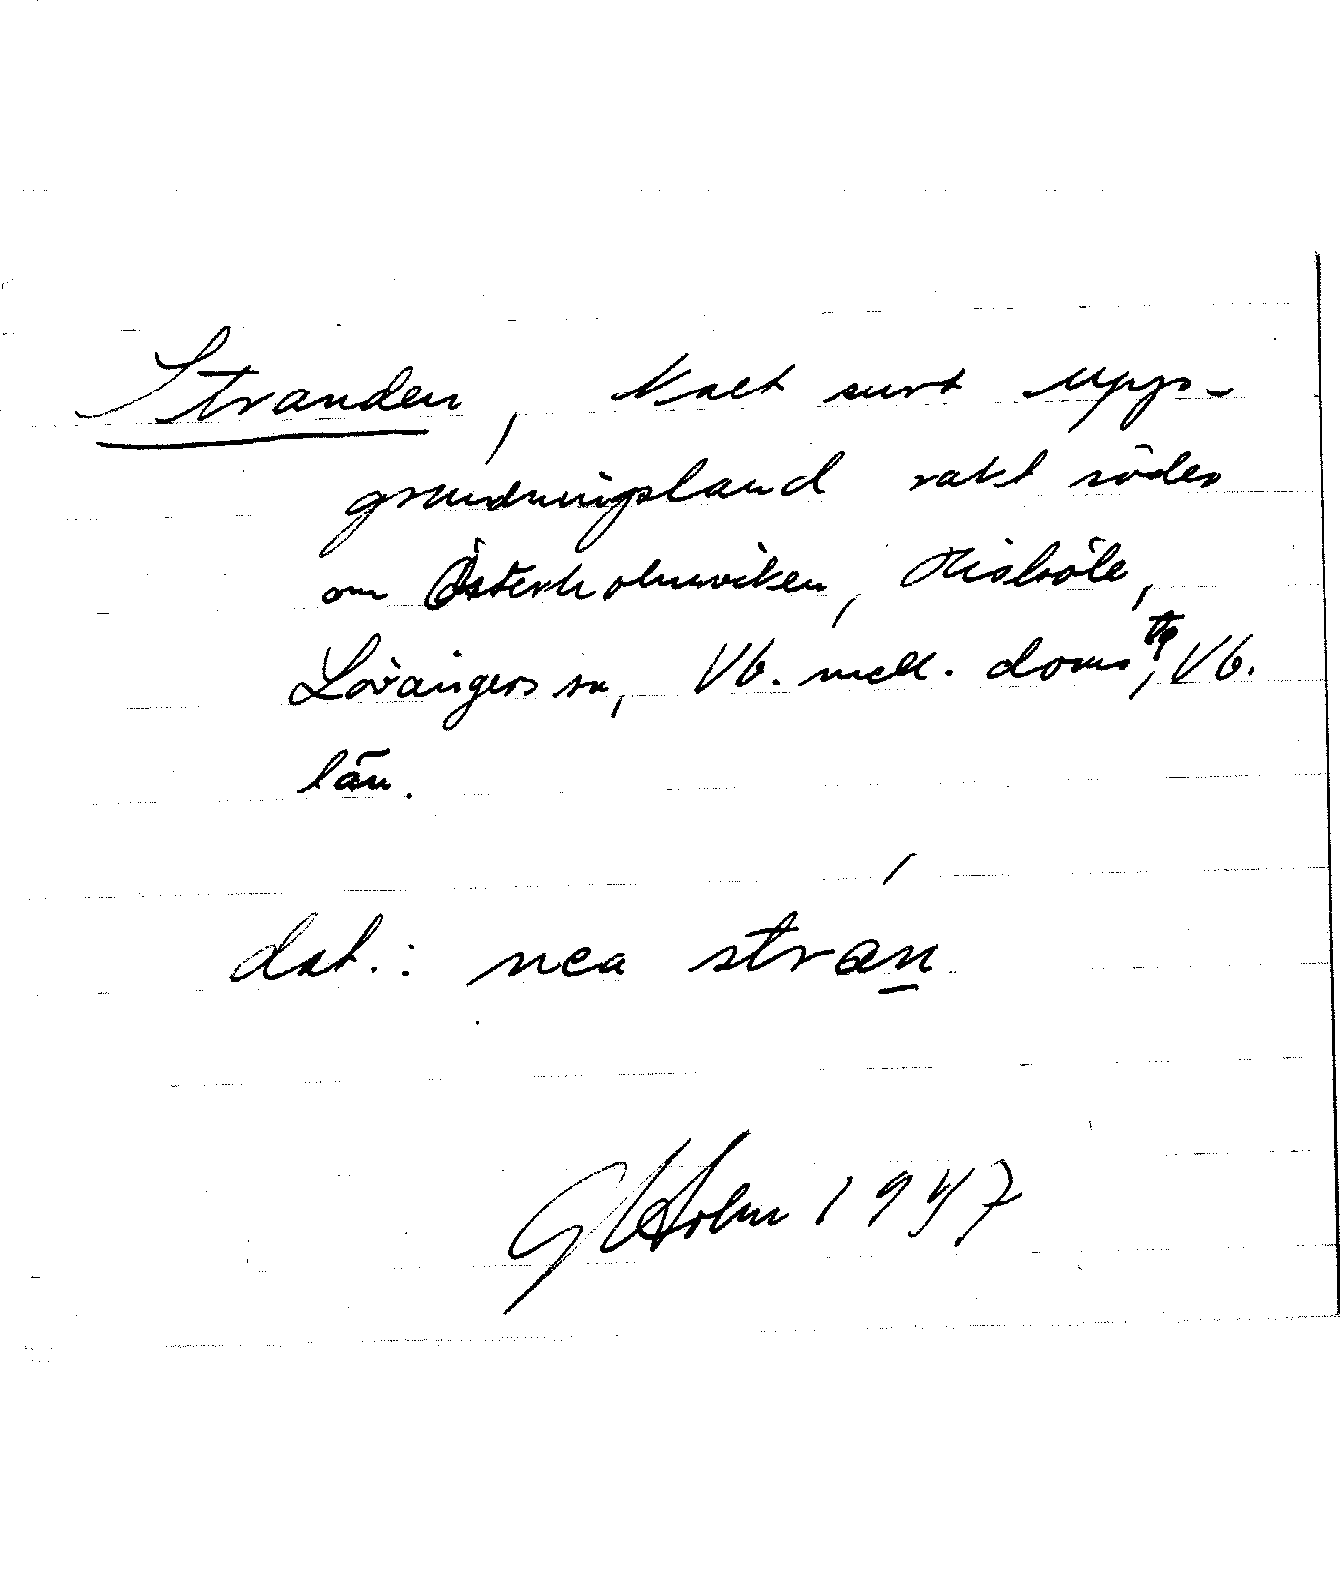 Stranden, Kalt surt upp-
grundningsland rakt söder
om Österholmviken, Hisböle,
Lövångers sn, Vb. mell. doms tg, Vb.
län.
dat.: nea stran
Holm 1947